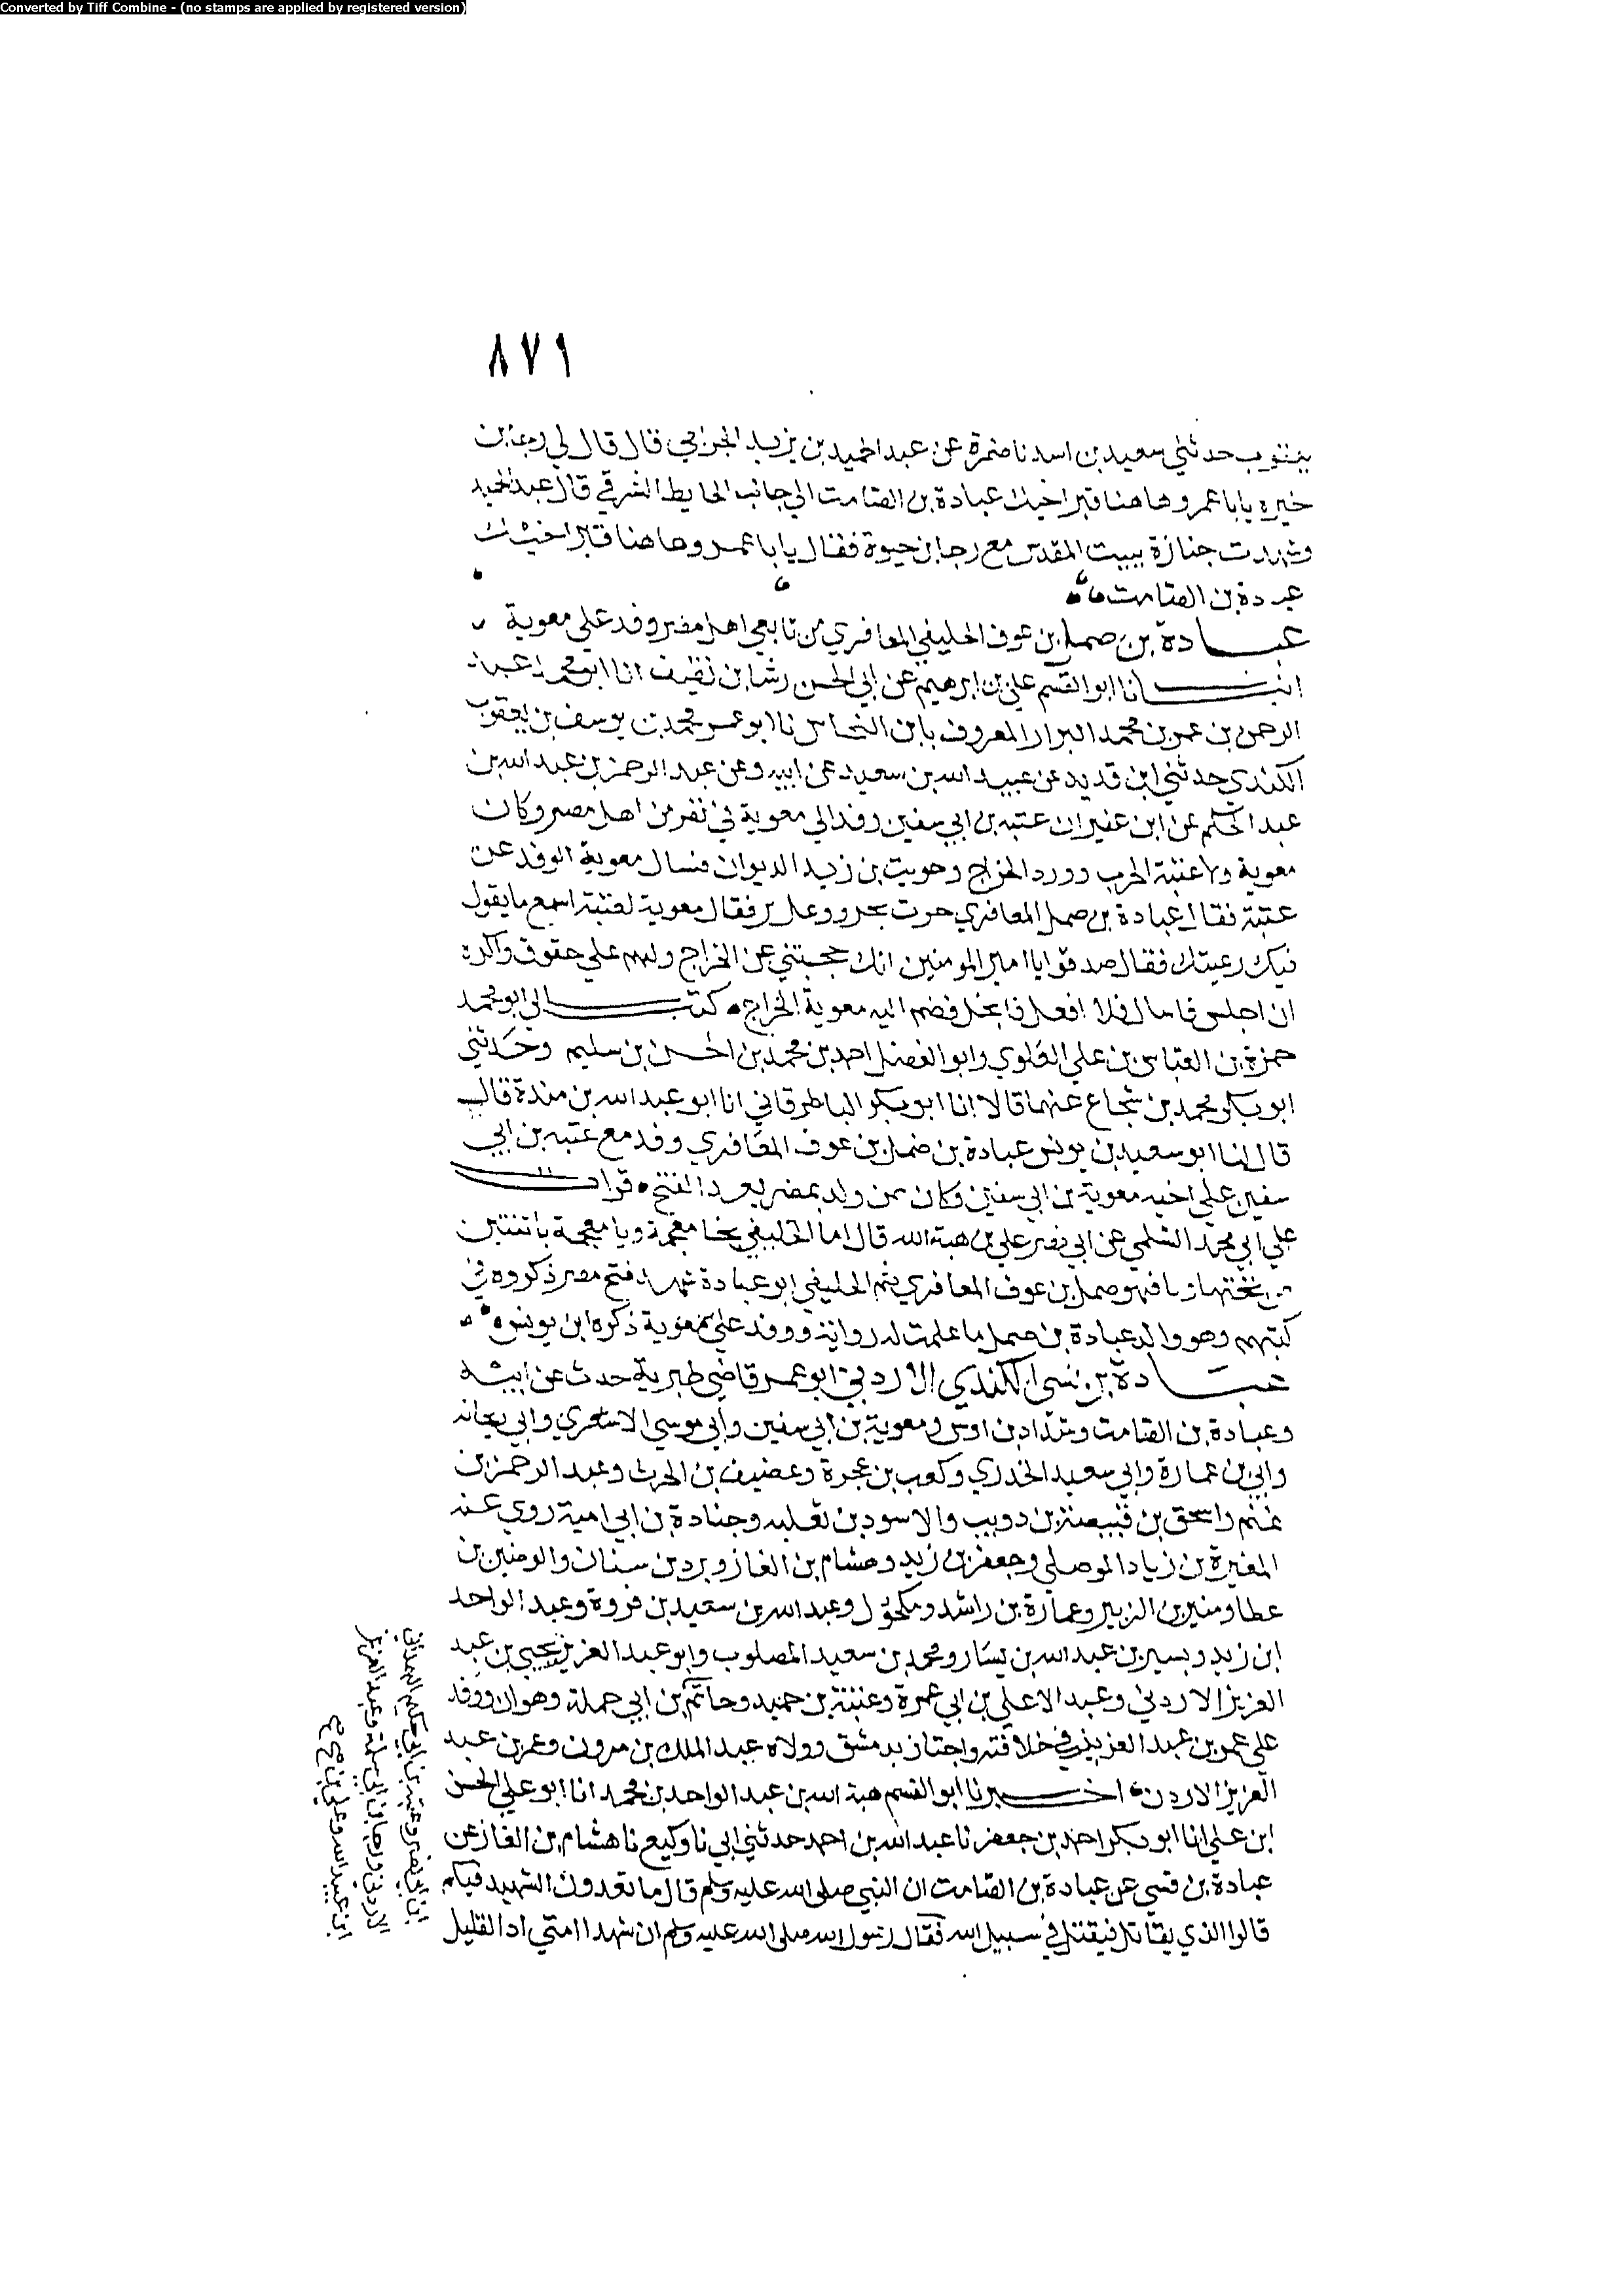 Converted by Tiff Combine - (no stamps are applied by registered version)
٨٧١
حدثني سعيد بن اسد نا ضمرة عن عبد الحميد بن يزيد الجرامي قال قال لي رجا بن
يابا عمرو هاهنا قبر اخيك عبادة بن الصامت الي جانب الحايط الشرقي قال عبد الحميد
وشهدت جنازة ببيت المقدس مع رجا بن حيوة فقال يابا عمرو هاهنا قبر اخيك
بن الصامت
عبادة بن صمل بن عوف الحليفي المعافري من تابعي اهل مصر وفد علي معوية
انبانا ابو القسم علي بن ابرهيم عن ابي الحسن رشا بن نظيف انا ابو محمد عبد
الرحمن بن عمر بن محمد البزار المعروف بابن النحاس نا ابو عمر محمد بن يوسف بن يعقوب
الكندي حدثني ابن قديد عن عبيد الله بن سعيد عن ابيه وعن عبد الرحمن بن عبد الله بن
عبد الحكم عن ابن عفير ان عتبه بن ابي سفين وفد الي معوية في نفر من اهل مصر وكان
معوية ولا عتبة الحرب وورد الخراج وحويت بن زيد الديوان فسال معوية الوفد عن
عتبة فقال عبادة بن صمل المعافري حوت بحر ووعل بر فقال معوية لعتبة اسمع ما يقول
فيك رعيتك فقال صدقوا يا امير المومنين انك حجبتني عن الخراج ولهم علي حقوق واكره
ان اجلس فاسال فلا افعل فابخل فضم اليه معوية الخراج كتب الي ابو محمد
حمزة بن العباس بن علي العلوي وابو الفضل احمد بن محمد بن الحسن بن سليم وحدثني
ابو بكر محمد بن شجاع عنهما قالا انا ابو بكر الباطرقاني انا ابو عبد الله بن مندة قال
قال لنا ابو سعيد بن يونس عبادة بن صمل بن عوف المعافري وفد مع عتبه بن ابي
سفين علي اخيه معوية بن ابي سفين وكان ممن ولد بمصر بعد الفتح قرات
علي ابي محمد السلمي عن ابي نصر علي بن هبة الله قال اما الخليفي بخا معجمة ويا معجمة باثنتين
من تحتها وفا فهو صمل بن عوف المعافري ثم الخليفي ابو عبادة شهد فتح مصر ذكروه في
كتبهم وهو والد عبادة بن صمل ما علمت له رواية ووفد علي معوية ذكره ابن يونس
عبادة بن نسي الكندي الاردني ابو عمر قاضي طبرية حدث عن ابيه
وعبادة بن الصامت وشداد بن اوس ومعوية بن ابي سفين وابي موسي الاشعري وابي ريحانه
وابي بن عمارة وابي سعيد الخدري وكعب بن عجرة وغضيف بن الحرث وعبد الرحمن بن
غنم واسحق بن قبيصة بن ذويب والاسود بن ثعلبه وجنادة بن ابي امية روي عنه
المغيرة بن زياد الموصلي وجعفر بن زيد وهشام بن الغاز وبرد بن سنان والوضين بن
عطا ومنير بن الزبير وعمارة بن راشد ومكحول وعبد الله بن سعيد بن فروة وعبد الواحد
ابن زيد وبسير بن عبد الله بن يسار ومحمد بن سعيد المصلوب وابو عبد العزيز يحيي بن عبد
العزيز الاردني وعبد الاعلي بن ابي عمرة وعتبة بن حميد وحاتم بن ابي حملة وهوان ووفد
علي عمر بن عبد العزيز في خلافته واجتاز بدمشق وولاه عبد الملك بن مرون وعمر بن عبد
العزيز الاردن اخبرنا ابو القسم هبة الله بن عبد الواحد بن محمد انا ابو علي الحسن
ابن علي انا ابو بكر احمد بن جعفر نا عبد الله بن احمد حدثني ابي نا وكيع نا هشام بن الغاز عن
عبادة بن نسي عن عبادة بن الصامت ان النبي صلي الله عليه وسلم قال ما تعدون الشهيد فيكم
قالوا الذي يقاتل فيقتل في سبيل الله فقال رسول الله صلي الله عليه وسلم ان شهدا امتي اذا لقليل
وعتبه بن ابي حكيم الهمداني
الاردني ورجا بن ابي سلمة وعبد العزيز
ابن عبيد الله وعلي بن